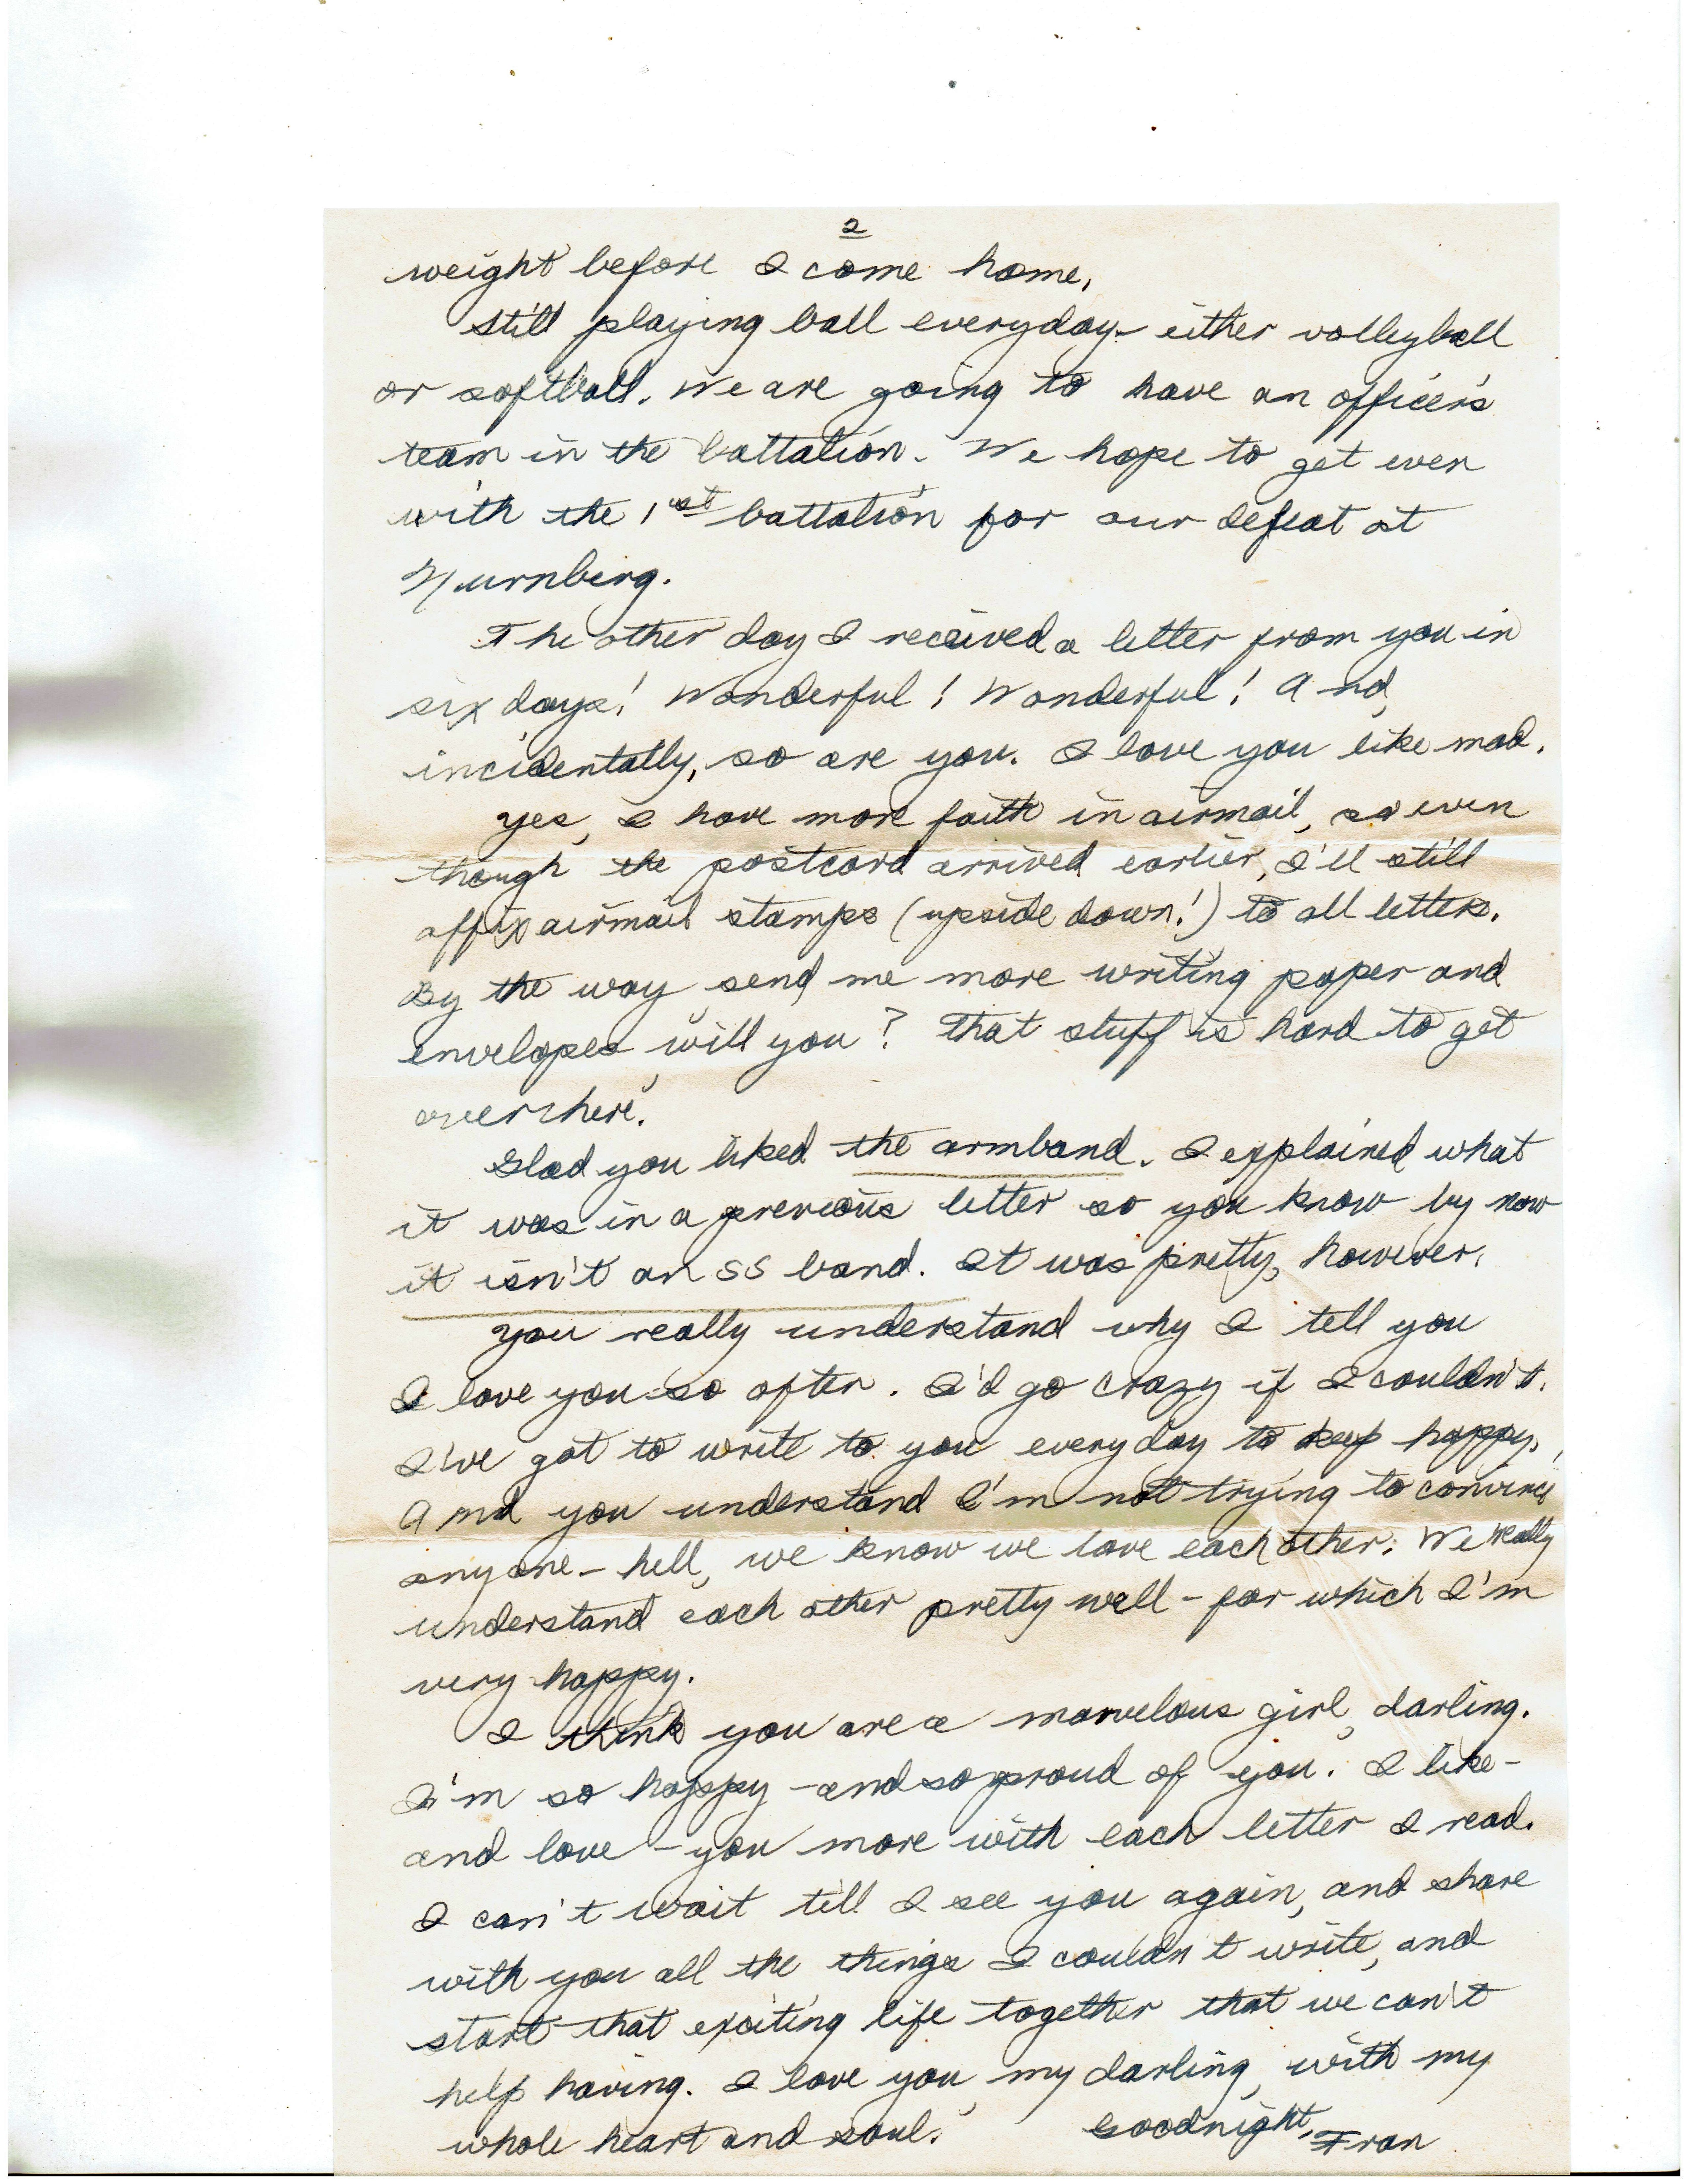 2
weight before I come home.
Still playing ball everyday - either volleyball
or softball. We are going to have an officer's
team in the battalion. We hope to get even
with the 1st battalion for our defeat at
Nurnberg.
The other day I received a letter from you in
six days! Wonderful! Wonderful! And,
incidentally, so are you. I love you like mad.
Yes, I have more faith in airmail, so even
though the postcard arrived earlier, I'll still
affix airmail stamps (upside down!) to all letters.
By the way send me more writing paper and
envelopes, will you? That stuff is hard to get
over here.
Glad you liked the armband. I explained what
it was in a previous letter so you know by now
it isn't an SS band. It was pretty, however.
You really understand why I tell you
I love you so often. I'd go crazy if I couldn't.
I've got to write to you everyday to keep happy.
And you understand I'm not trying to convince
anyone - hell, we know we love each other. We really
understand each other pretty well - for which I'm
very happy.
I think you are a marvelous girl, darling.
I'm so happy - and so proud of you. I like -
and love - you more with each letter I read.
I can't wait till I see you again, and share
with you all the things I couldn't write, and
start that exciting life together that we can't
help having. I love you, my darling, with my
whole heart and soul. Goodnight, Fran